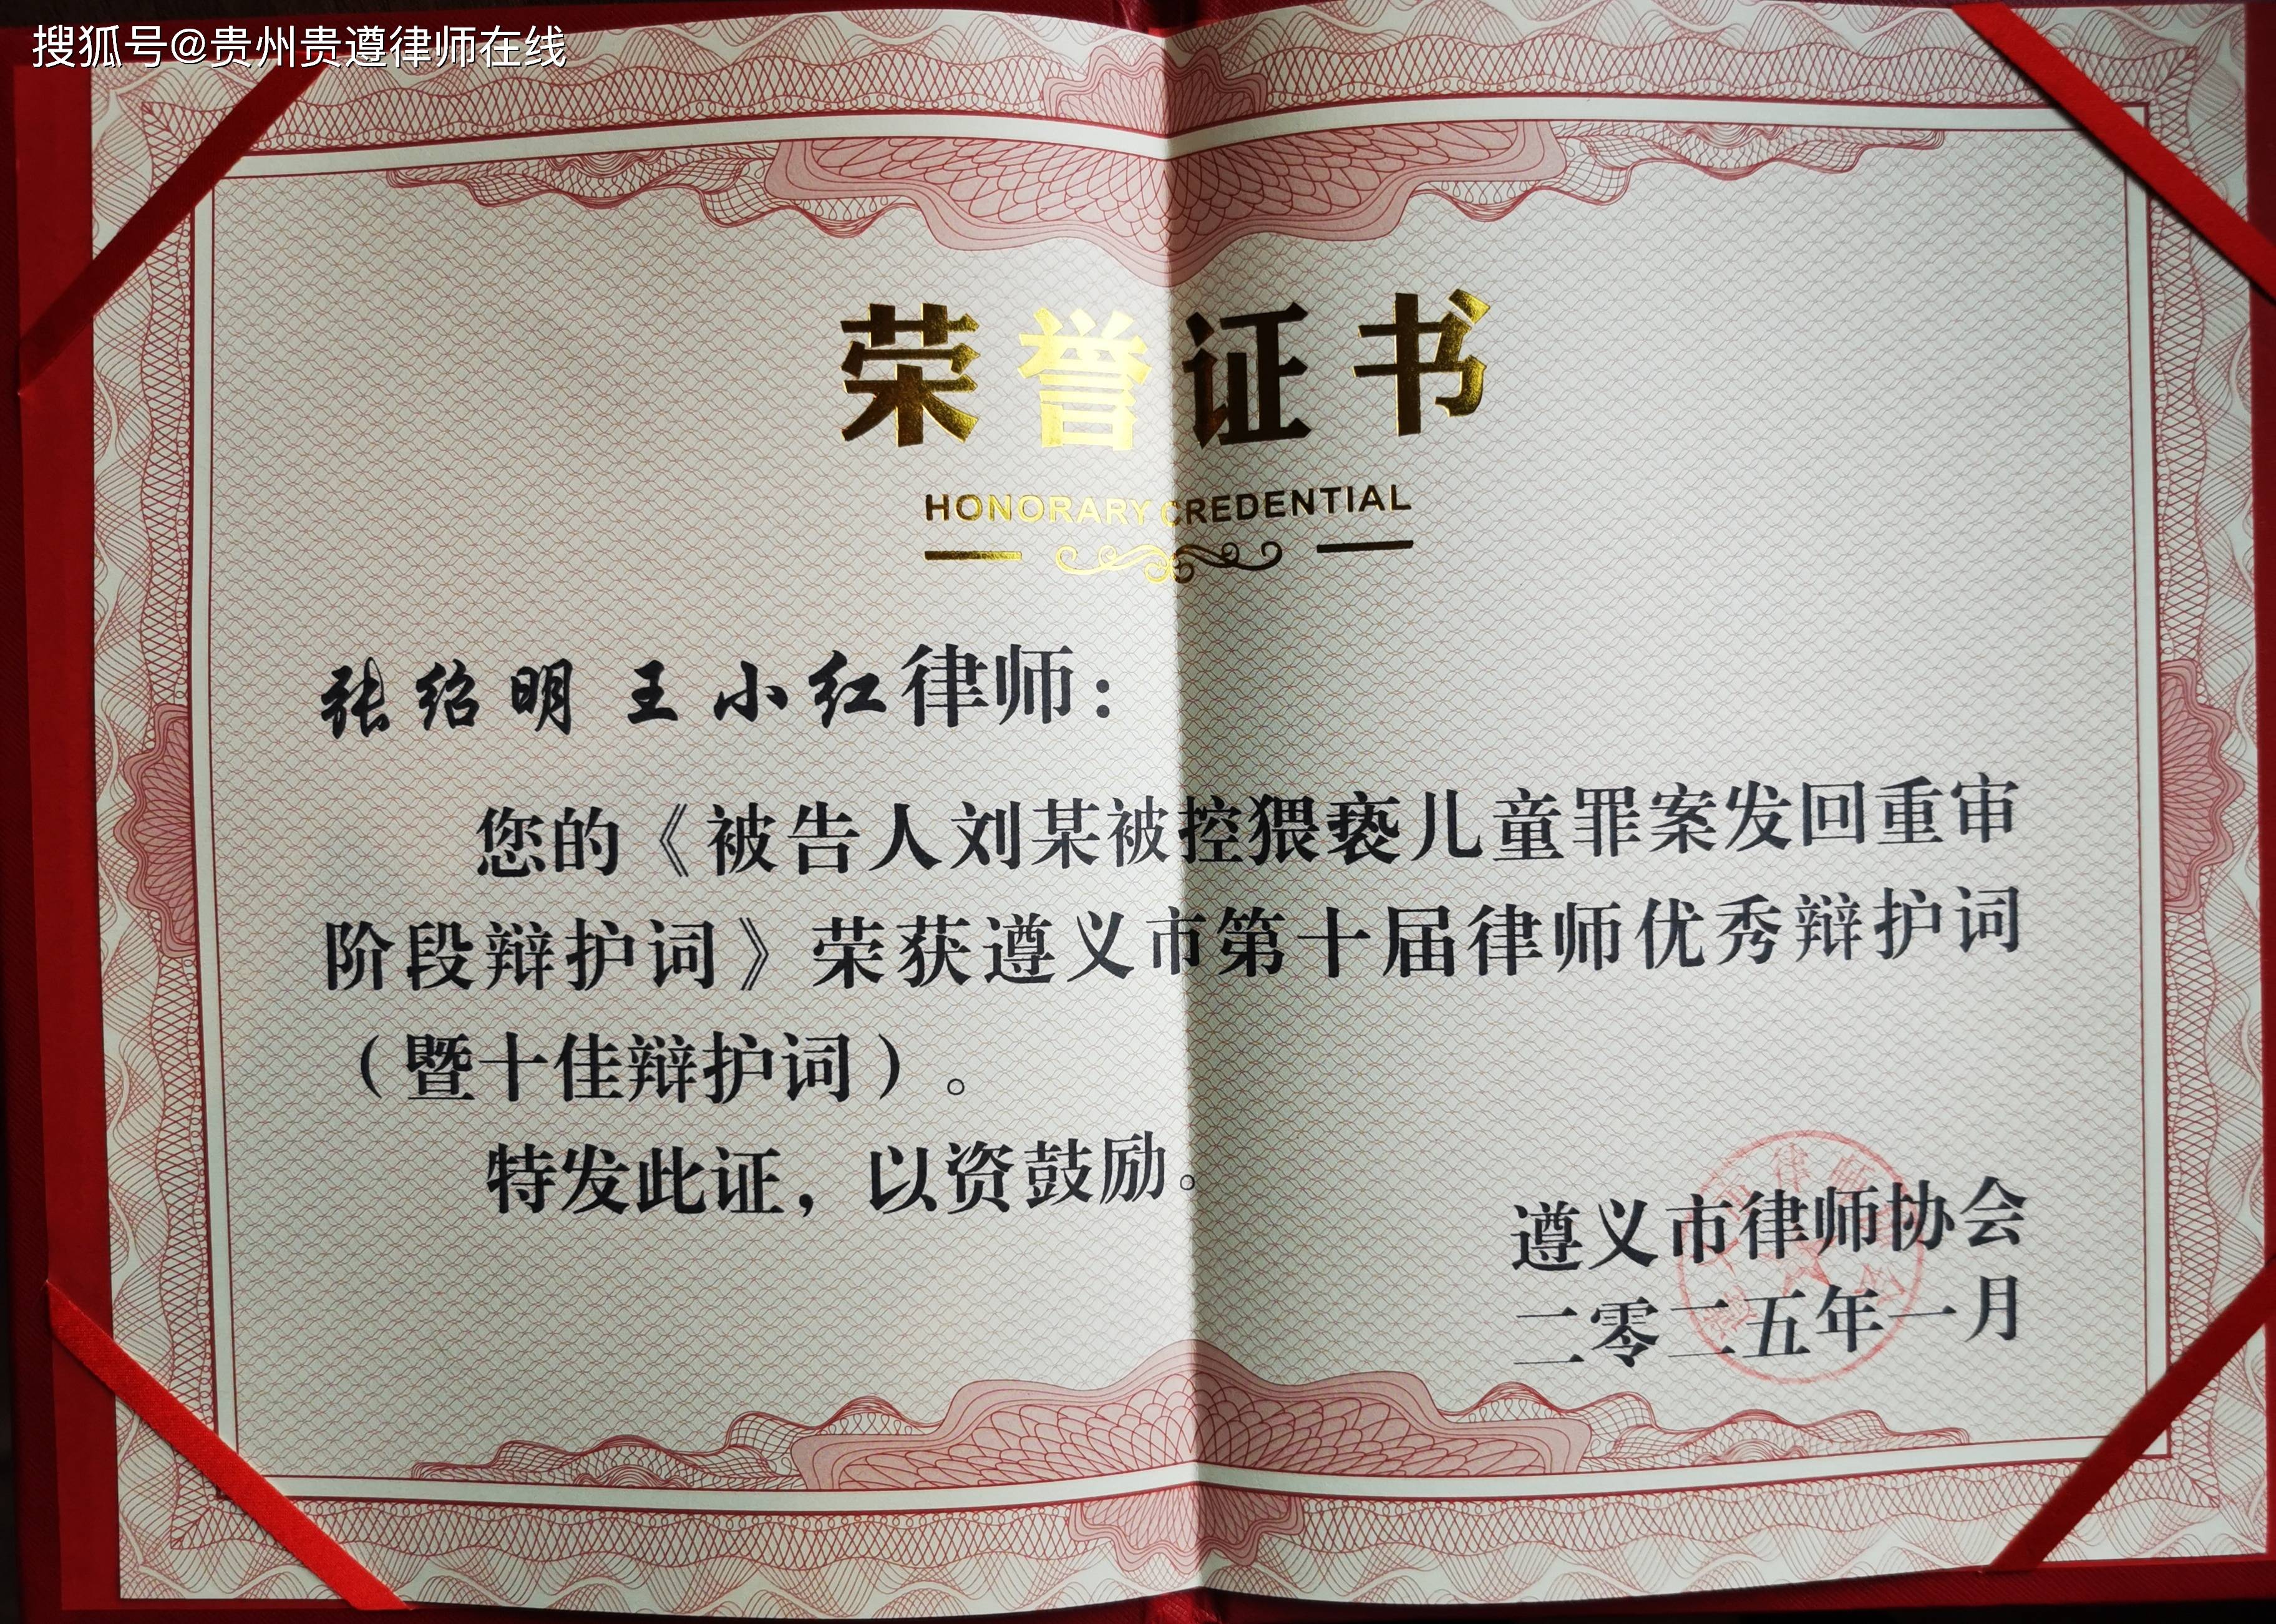 搜狐号@贵州贵遵律师在线
荣誉证书
HONORARY CREDENTIAL
张绍明 王小红律师：
您的《被告人刘某被控猥亵儿童罪案发回重审
阶段辩护词》荣获遵义市第十届律师优秀辩护词
（暨十佳辩护词）。
特发此证，以资鼓励。
遵义市律师协会
二零二五年一月